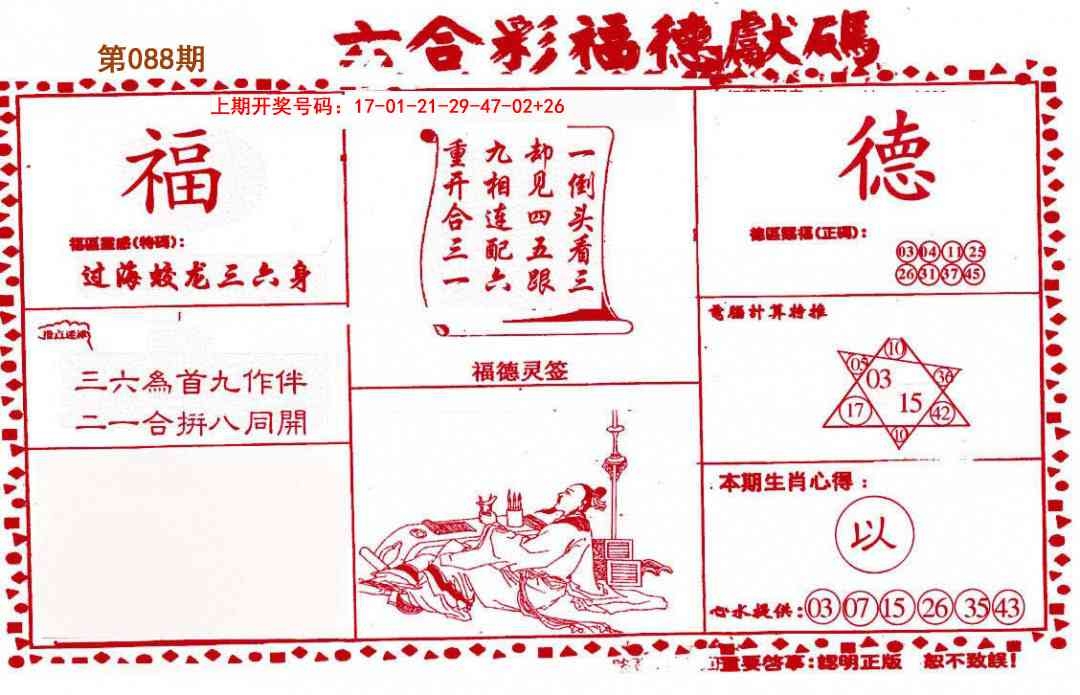 第088期
六合彩福德獻碼
上期开奖号码：17-01-21-29-47-02+26
福
福區靈感(特碼)：
过海蛟龙三六身
三六為首九作伴
二一合拼八同開
一倒头看三
却见四五跟
九相连配六
重开合三一
福德灵签
德
德區賜福(正碼)：
03 04 11 25
26 31 37 45
電腦計算特推
10
05 03 36
17 15 42
10
本期生肖心得：
以
心水提供：03 07 15 26 35 43
重要啓事：認明正版 恕不致誤！